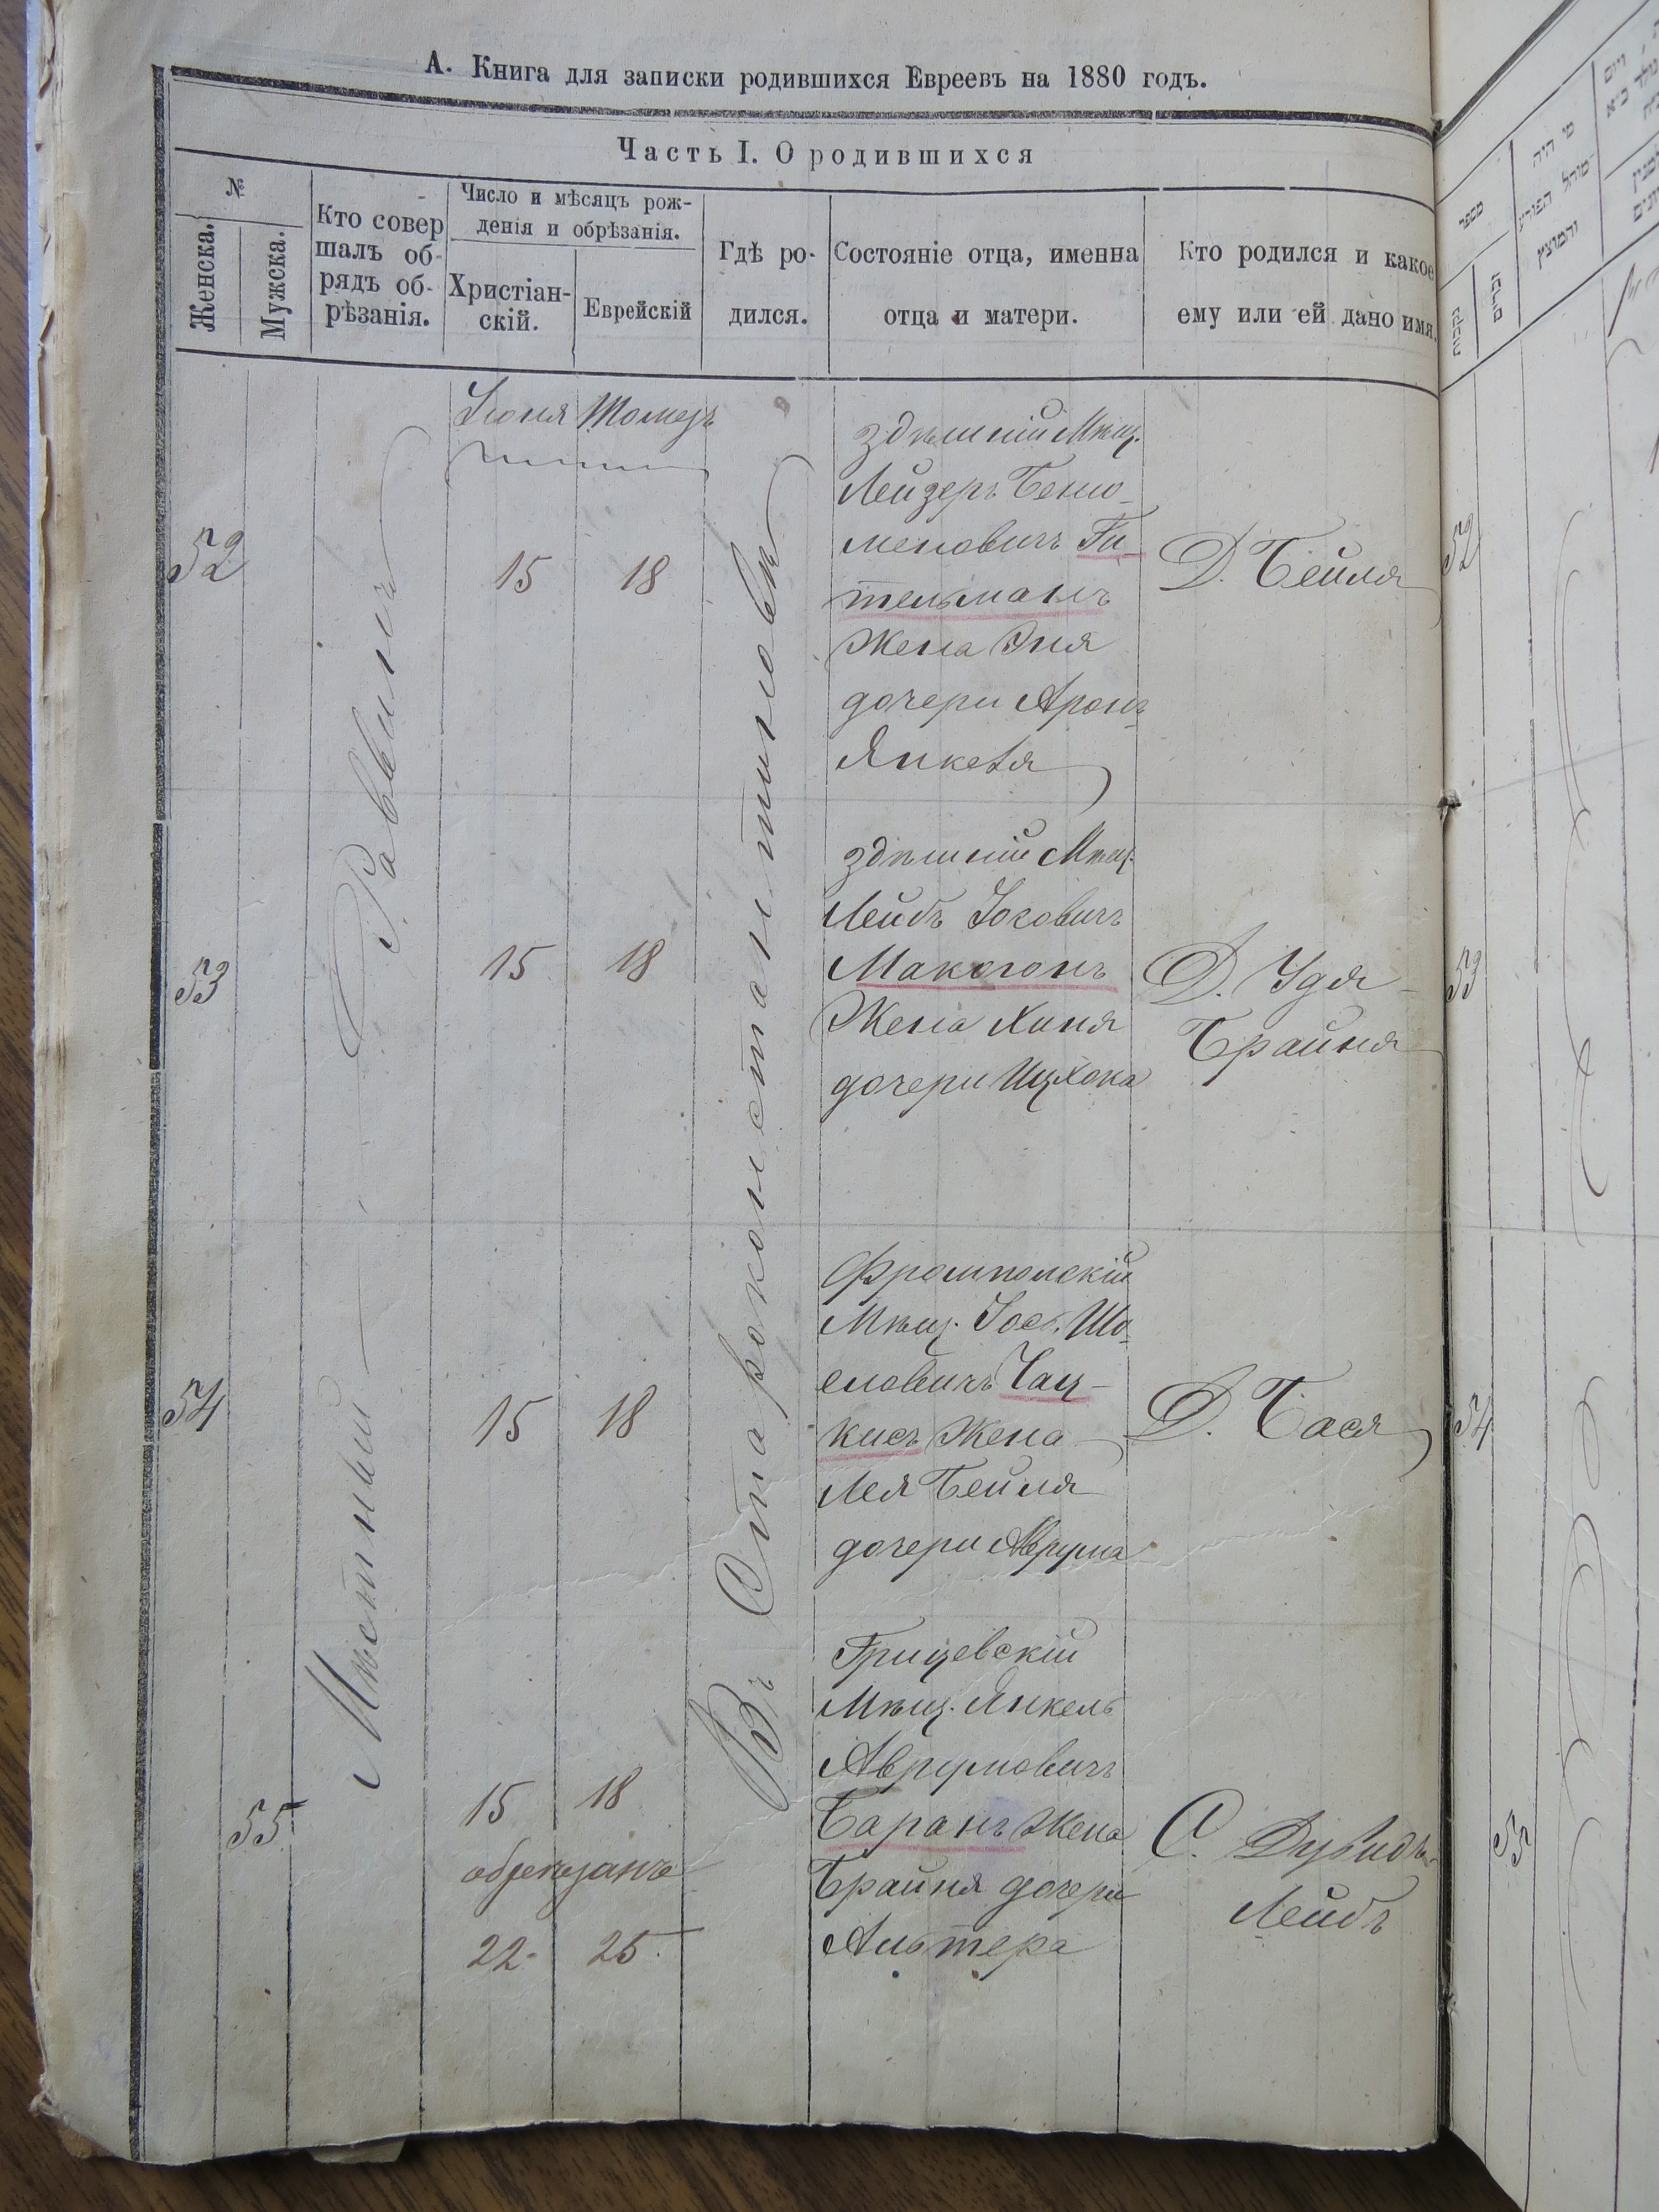 А. Книга для записки родившихся Евреевъ на 1880 годъ.
Часть I. О родившихся
№
Женска.
Мужска.
Кто совер
шалъ об-
рядъ об-
рѣзанія.
Число и мѣсяцъ рож-
денія и обрѣзанія.
Христіан-
скій.
Еврейскій
Гдѣ ро-
дился.
Состояніе отца, именна
отца и матери.
Кто родился и какое
ему или ей дано имя.
Іюня
Мѣстный Раввинъ
Въ Староконстантиновѣ
52
15
18
здѣшній Мѣщ.
Лейзеръ Бенио-
меновичъ Ги-
тельманъ
Жена Эня
дочери Аронъ
Янкеля
Д. Бейля
52
53
15
18
здѣшній Мѣщ.
Лейбъ
Макогонъ
Жена Хиня
дочери Ицхока
Д. Удя
Брайня
53
54
15
18
Фрампольскій
Мѣщ. Іос. Шо-
еловичъ Чац-
кисъ Жена
Лея Бейля
дочери Аврума
Д. Бася
54
55
15
18
обрѣзанъ
22
25
Грицевскій
Мѣщ. Янкель
Аврумовичъ
Баранъ Жена
Брайня дочери
Альтера
С. Дувидъ
Лейбъ
55
מספר
נקבות
זכרים
מי היה